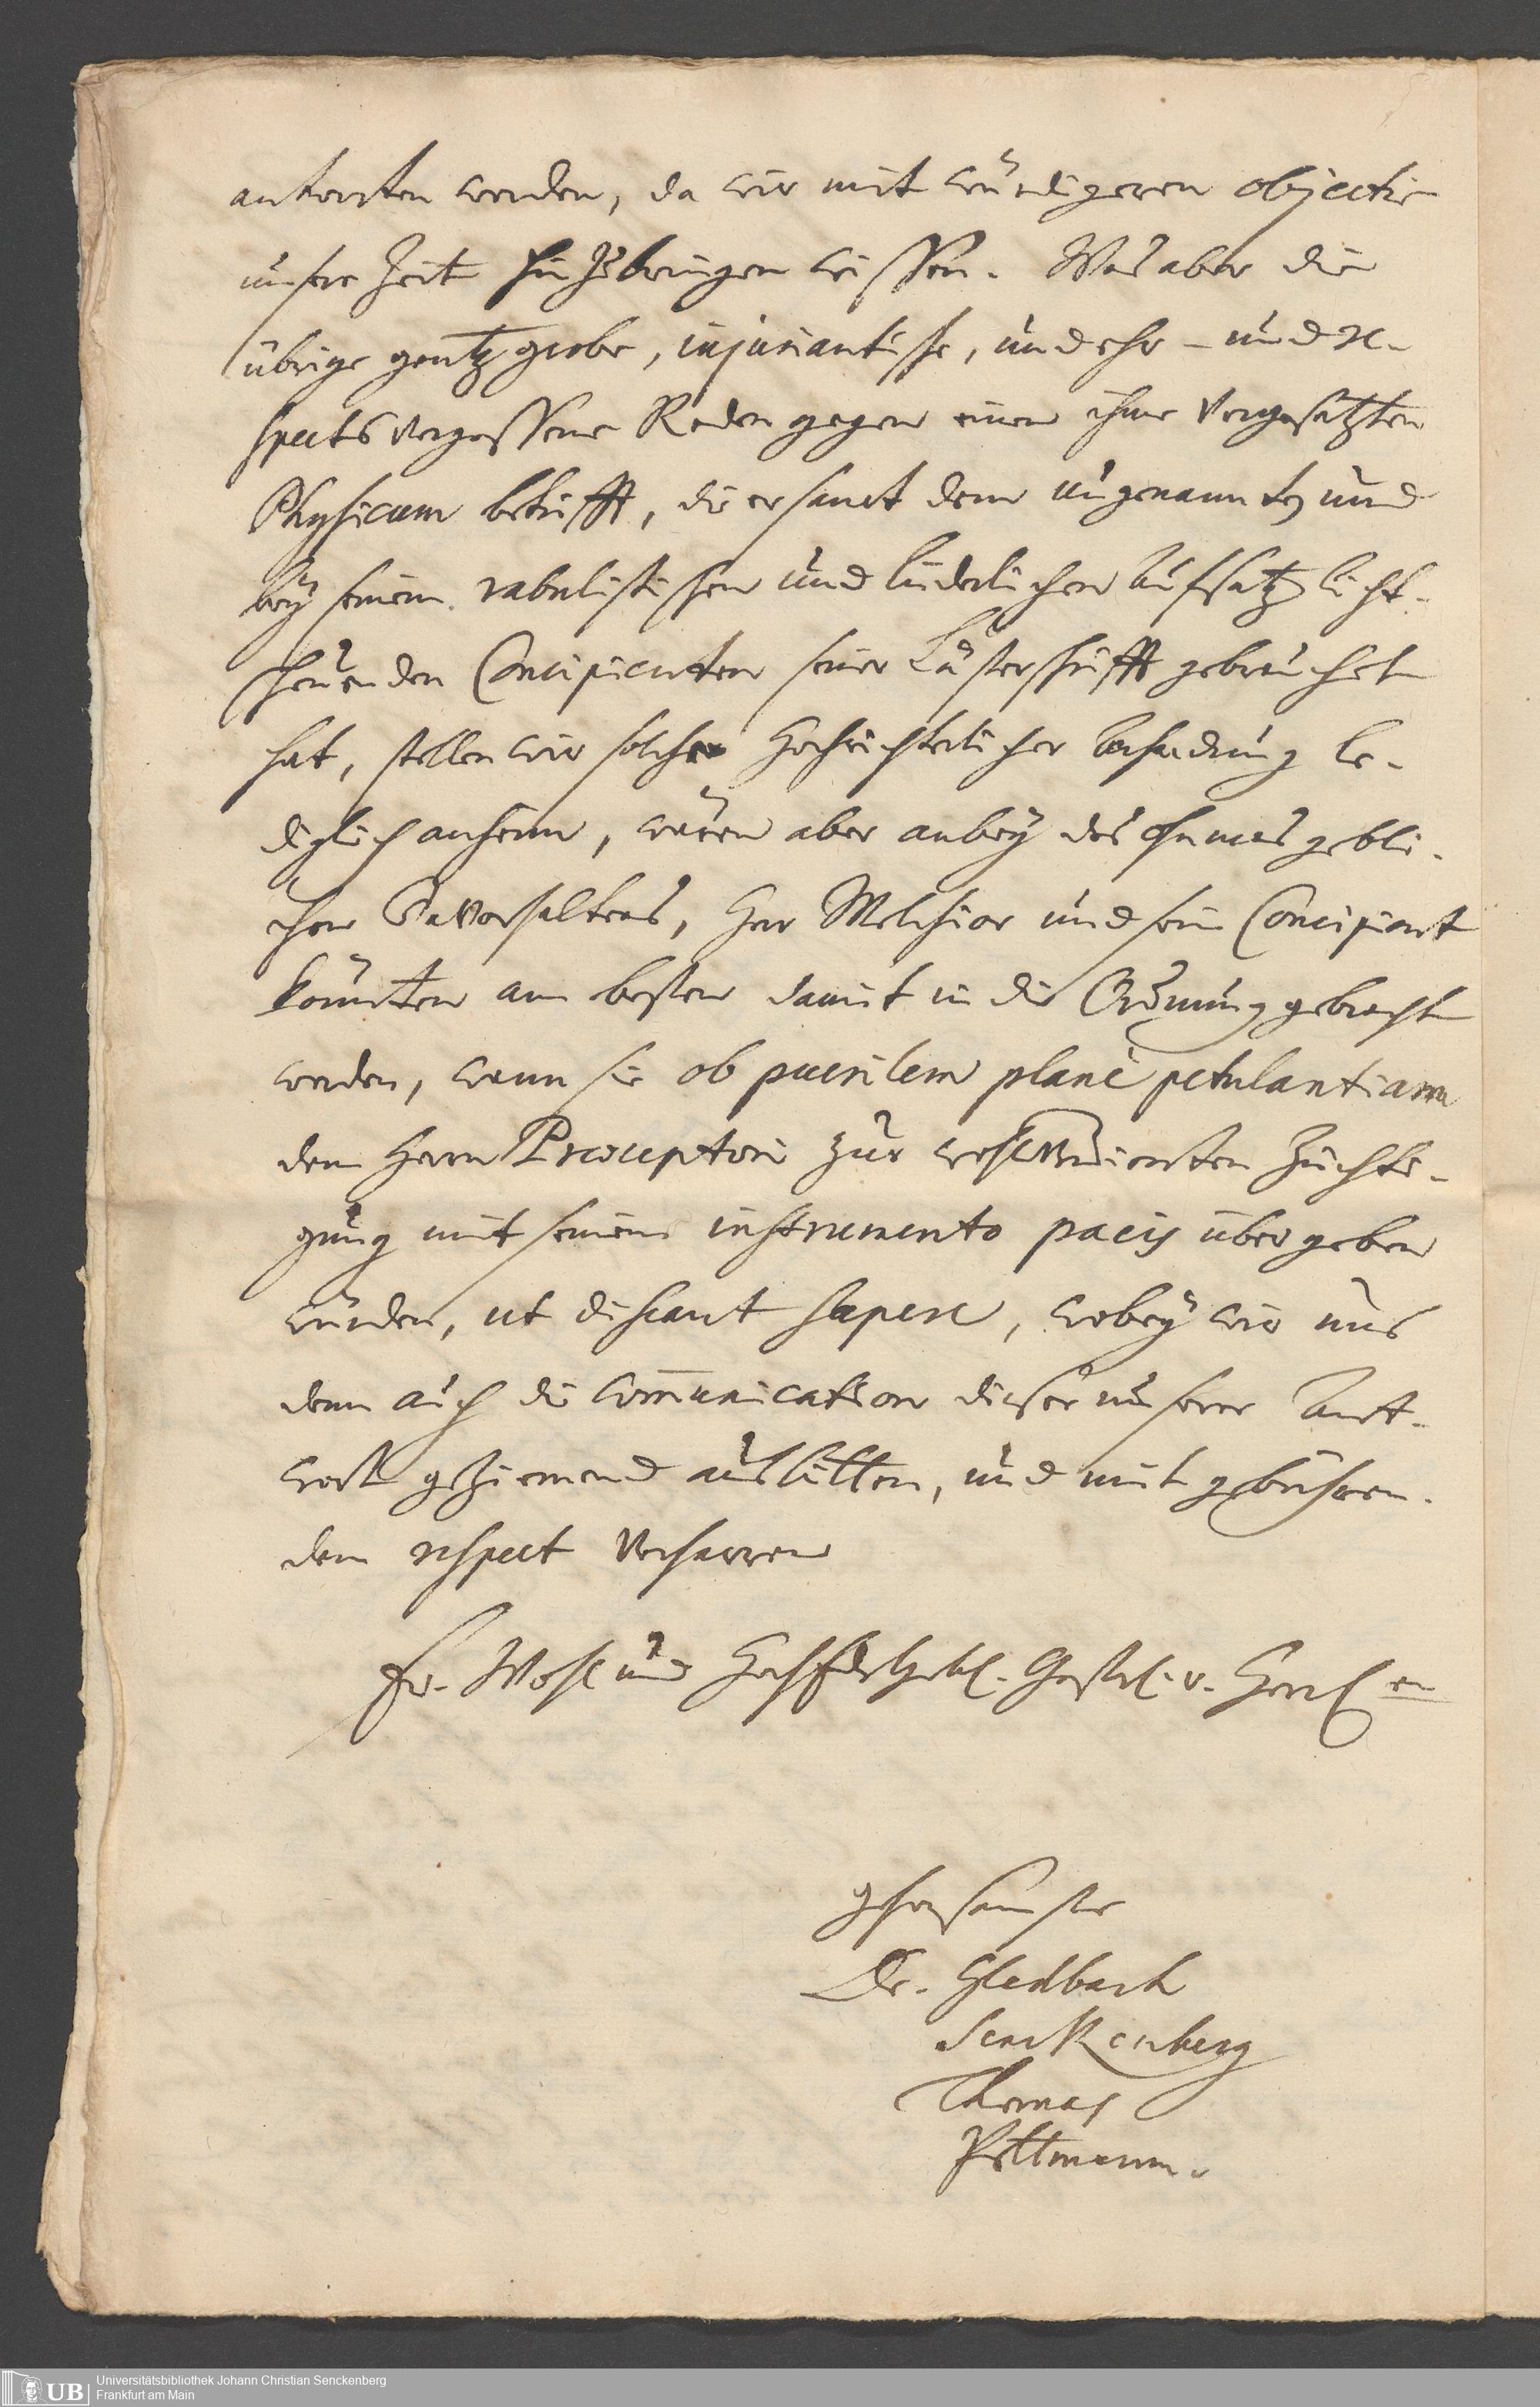 antworten werden, da wir mit würdigeren objectis
unsere Zeit hinzubringen wissen. Was aber die
übrige gantz grobe, injuriantische, und ehr- und re-
spectsvergessene Reden gegen einen ihme vorgesatzten
Physicum betrifft, die er samt dem ungenannten und
bey seinem rabulistischen und liederlichen Aufsatz licht-
scheuenden Concipienten seiner Lästerschrifft gebrauchet
hat, stellen wir solche Hochrichterlicher Ahndung le-
diglich anheim, wären aber anbey des
chen Davorhaltens, Herr Melchior und sein Concipient
könnten am besten damit in die Ordnung gebracht
werden, wann sie ob puerilem planè petulantiam
dem Herrn Præceptori zur wohlverdienten Züchti-
gung mit seinem instrumento pacis übergeben
würden, ut discant sapere, wobey wir uns
denn auch die com̅unication dieser unserer Antt-
wort geziemend ausbitten, und mit gebühren-
dem respect verharren
Ew. Wohl und
gehorsamste
Dr. Gladbach
Senckenberg
Thomas
Pettmann.
Universitätsbibliothek Johann Christian Senckenberg
Frankfurt am Main
UB